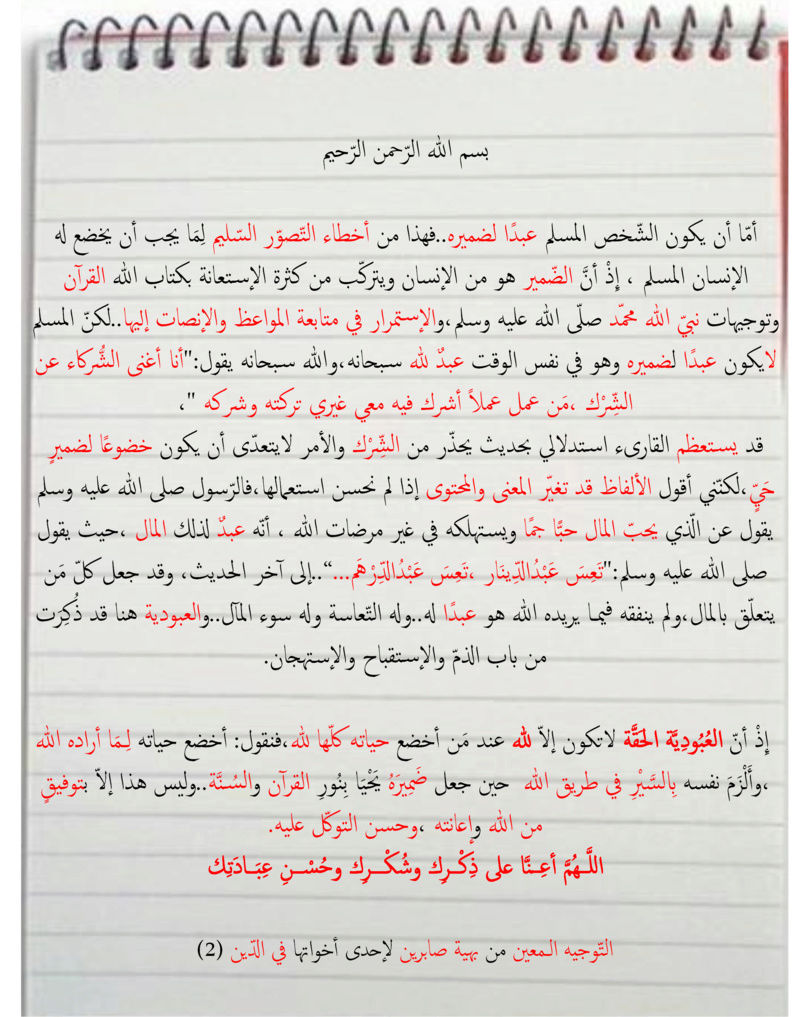 بسم الله الرّحمن الرّحيم
أمّا أن يكون الشّخص المسلم عبدًا لضميره..فهذا من أخطاء التّصوّر السّليم لِمَا يجب أن يخضع له
الإنسان المسلم ، إِذْ أنَّ الضّمير هو من الإنسان ويتركّب من كثرة الإستعانة بكتاب الله القرآن
وتوجيهات نبيّ الله محمّد صلّى الله عليه وسلم،والإستمرار في متابعة المواعظ والإنصات إليها..لكنّ المسلم
لايكون عبدًا لضميره وهو في نفس الوقت عبدٌ لله سبحانه،والله سبحانه يقول:"أنا أغنى الشُّركاء عن
الشِّرْك ،مَن عمل عملاً أشرك فيه معي غيري تركته وشركه "،
قد يستعظم القارىء استدلالي بحديث يحذّر من الشِّرْك والأمر لايتعدّى أن يكون خضوعًا لضميرٍ
حَيّ،لكنّني أقول الألفاظ قد تغيّر المعنى والمحتوى إذا لم نحسن استعمالها،فالرّسول صلى الله عليه وسلم
يقول عن الّذي يحبّ المال حبًّا جمًّا ويستهلكه في غير مرضات الله ، أنّه عبدٌ لذلك المال ،حيث يقول
صلى الله عليه وسلم:"تَعِسَ عَبْدُالدِّينَار ،تَعِسَ عَبْدُالدِّرْهَم...“..إلى آخر الحديث، وقد جعل كلّ مَن
يتعلّق بالمال،ولم ينفقه فيما يريده الله هو عبدًا له..وله التّعاسة وله سوء المآل..والعبودية هنا قد ذُكِرَت
من باب الذمّ والإستقباح والإستهجان.
إِذْ أنّ العُبُودِيَّة الحَقَّة لاتكون إلاّ لله عند مَن أخضع حياته كلّها لله،فنقول: أخضع حياته لِمَا أراده الله
،وأَلْزَمَ نفسه بِالسَّيْرِ في طريق الله حين جعل ضَمِيرَهُ يَحْيَا بِنُورِ القرآن والسُنَّة..وليس هذا إلاّ بتوفيقٍ
من الله وإعانته ،وحسن التوكّل عليه.
اللَّهُمَّ أعِنَّا على ذِكْرِك وشُكْرِك وحُسْنِ عِبَادَتِك
التّوجيه المعين من بهية صابرين لإحدى أخواتها في الدّين (2)